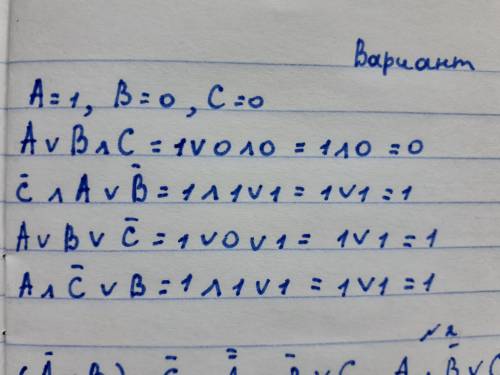 Вариант
A=1, B=0, C=0
A∨B∧C = 1∨0∧0 = 1∧0 = 0
C̄ ∧ A ∨ B̄ = 1∧1∨1 = 1∨1 = 1
A∨B∨C̄ = 1∨0∨1 = 1∨1 = 1
A∧C̄∨B = 1∧1∨1 = 1∨1 = 1
№2